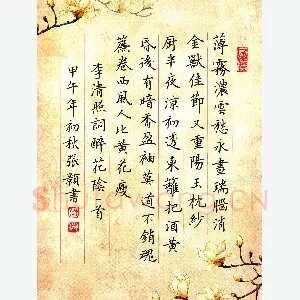 薄霧濃雲愁永晝瑞腦消
金獸佳節又重陽玉枕紗
厨半夜涼初透東籬把酒黃
昏後有暗香盈袖莫道不銷魂
簾卷西風人比黃花瘦
李清照詞醉花陰一首
甲午年初秋張顥書